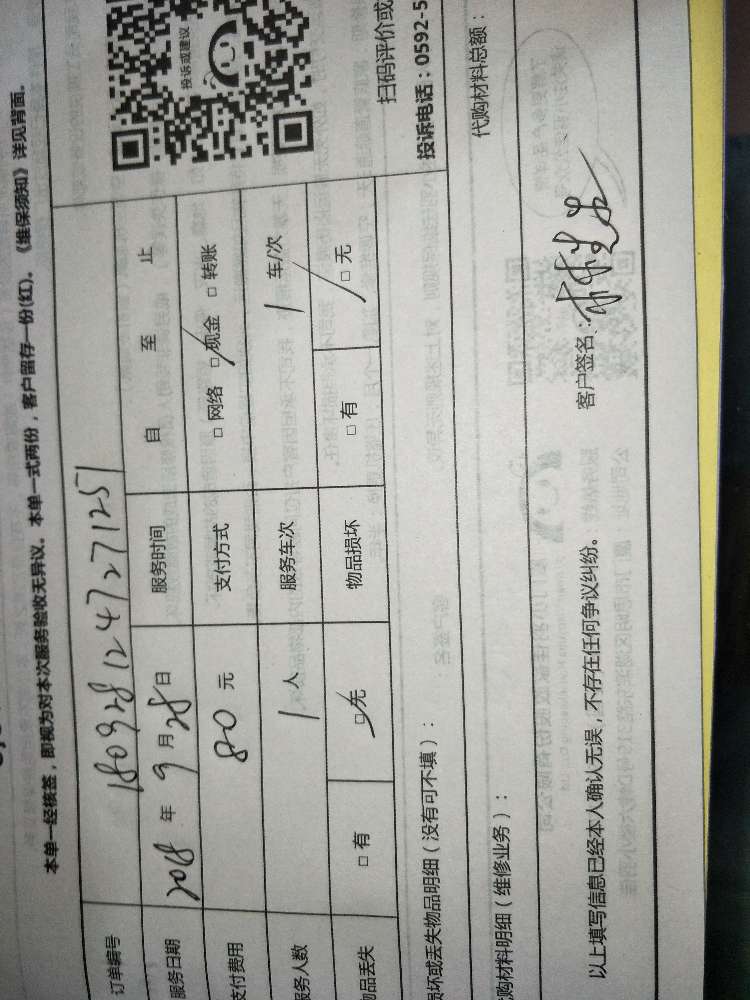 本单一经核签，即视为对本次服务验收无异议。本单一式两份，客户留存一份(红)。《维保须知》详见背面。
订单编号 1809281247271251
服务日期 2018 年 9 月 28 日 服务时间 自 至 止
支付费用 80 元 支付方式 □ 网络 □ 现金 □ 转账
服务人数 1 人 服务车次 1 车/次
物品丢失 □ 有 □ 无 物品损坏 □ 有 □ 无
投诉或建议
扫码评价或
投诉电话：0592-5
损坏或丢失物品明细（没有可不填）：
购材料明细（维修业务）： 代购材料总额：
以上填写信息已经本人确认无误，不存在任何争议纠纷。 客户签名：林先生